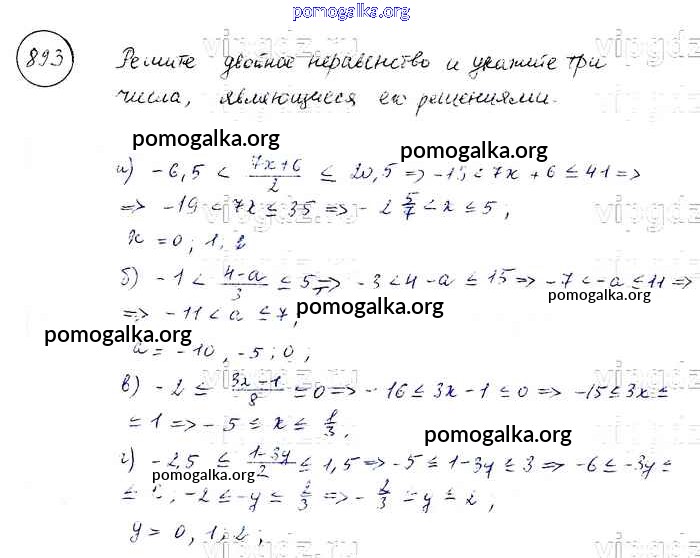 pomogalka.org
893 Решите двойное неравенство и укажите три
числа, являющиеся его решениями.
pomogalka.org pomogalka.org
а) -6,5 < (7x+6)/2 ≤ 20,5 => -13 < 7x + 6 ≤ 41 =>
=> -19 < 7x ≤ 35 => -2 5/7 < x ≤ 5;
x = 0; 1, 2
б) -1 < (4-a)/3 ≤ 5 => -3 < 4-a ≤ 15 => -7 < -a ≤ 11 =>
pomogalka.org
=> -11 < a ≤ 7;
pomogalka.org pomogalka.org
a = -10, -5; 0;
в) -2 ≤ (3x-1)/8 ≤ 0 => -16 ≤ 3x-1 ≤ 0 => -15 ≤ 3x ≤
≤ 1 => -5 ≤ x ≤ 1/3,
pomogalka.org
г) -2,5 ≤ (1-3y)/2 ≤ 1,5 => -5 ≤ 1-3y ≤ 3 => -6 ≤ -3y ≤
pomogalka.org
≤ 2; -2 ≤ -y ≤ 2/3 => -2/3 ≤ y ≤ 2;
y = 0, 1, 2;
vipgdz